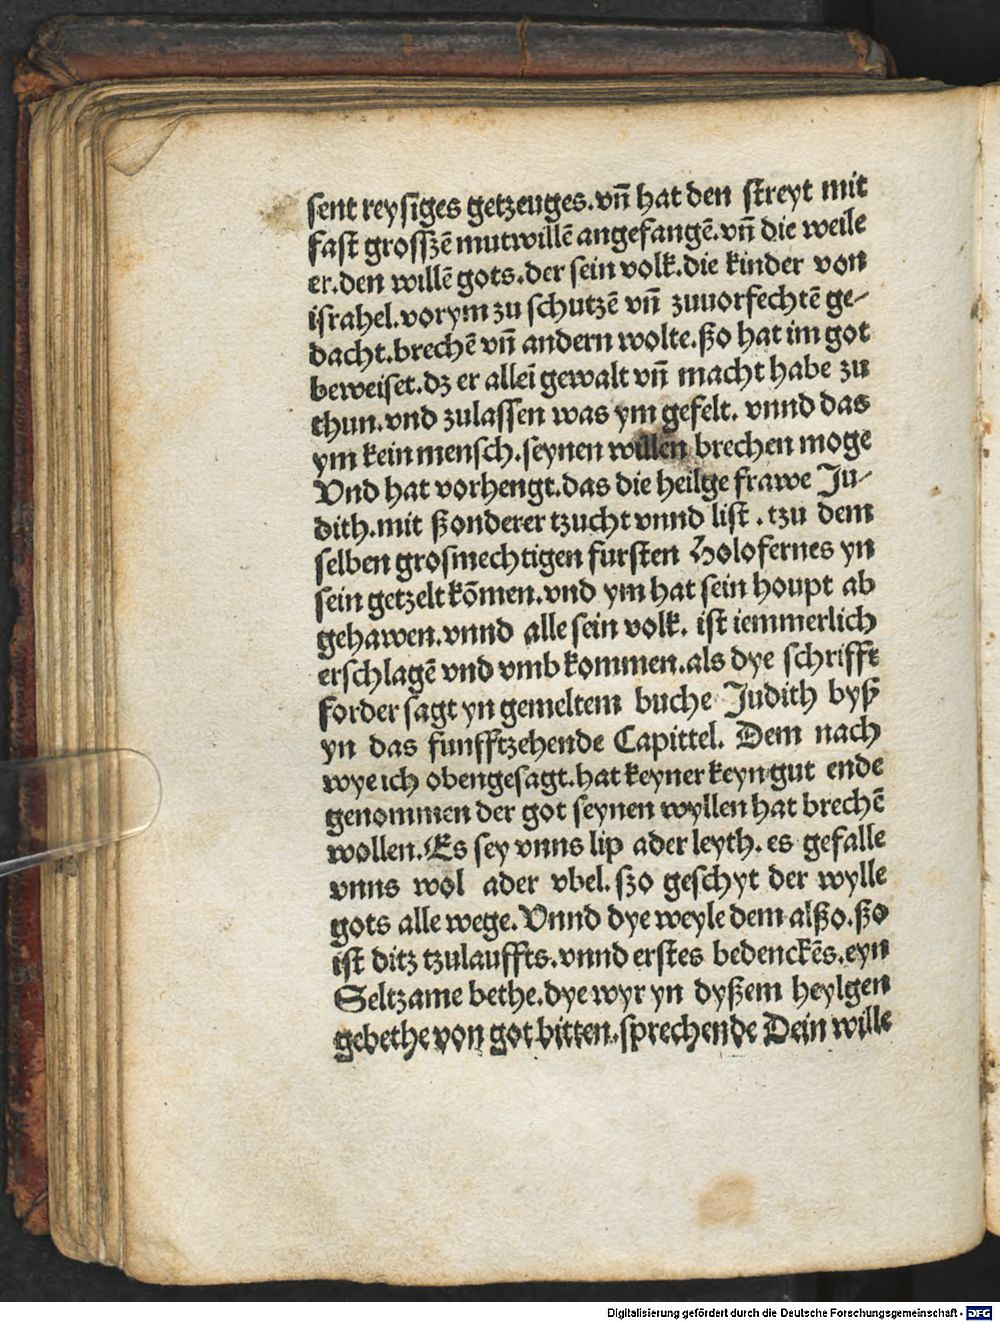 sent reysiges getzeuges.vn̄ hat den streyt mit
fast grosszē mutwillē angefangē.vn̄ die weile
er.den willē gots.der sein volk.die kinder von
israhel.vorym zu schutzē vn̄ zuuorfechtē ge-
dacht.brechē vn̄ andern wolte.ßo hat im got
beweiset.dz er alleī gewalt vn̄ macht habe zu
thun.vnd zulassen was ym gefelt. vnnd das
ym kein mensch.seynen willen brechen moge
Vnd hat vorhengt.das die heilge frawe Ju-
dith.mit ßonderer tzucht vnnd list. tzu dem
selben grosmechtigen fursten Holofernes yn
sein getzelt kōmen.vnd ym hat sein houpt ab
gehawen.vnnd alle sein volk. ist iemmerlich
erschlagē vnd vmb kommen.als dye schrifft
forder sagt yn gemeltem buche Judith byß
yn das funfftzehende Capittel. Dem nach
wye ich obengesagt.hat keyner keyn gut ende
genommen der got seynen wyllen hat brechē
wollen.Es sey vnns lip ader leyth. es gefalle
vnns wol ader vbel. szo geschyt der wylle
gots alle wege. Vnnd dye weyle dem alßo.ßo
ist ditz tzulauffts.vnnd erstes bedenckēs.eyn
Seltzame bethe.dye wyr yn dyßem heylgen
gebethe von got bitten.sprechende Dein wille
Digitalisierung gefördert durch die Deutsche Forschungsgemeinschaft - DFG